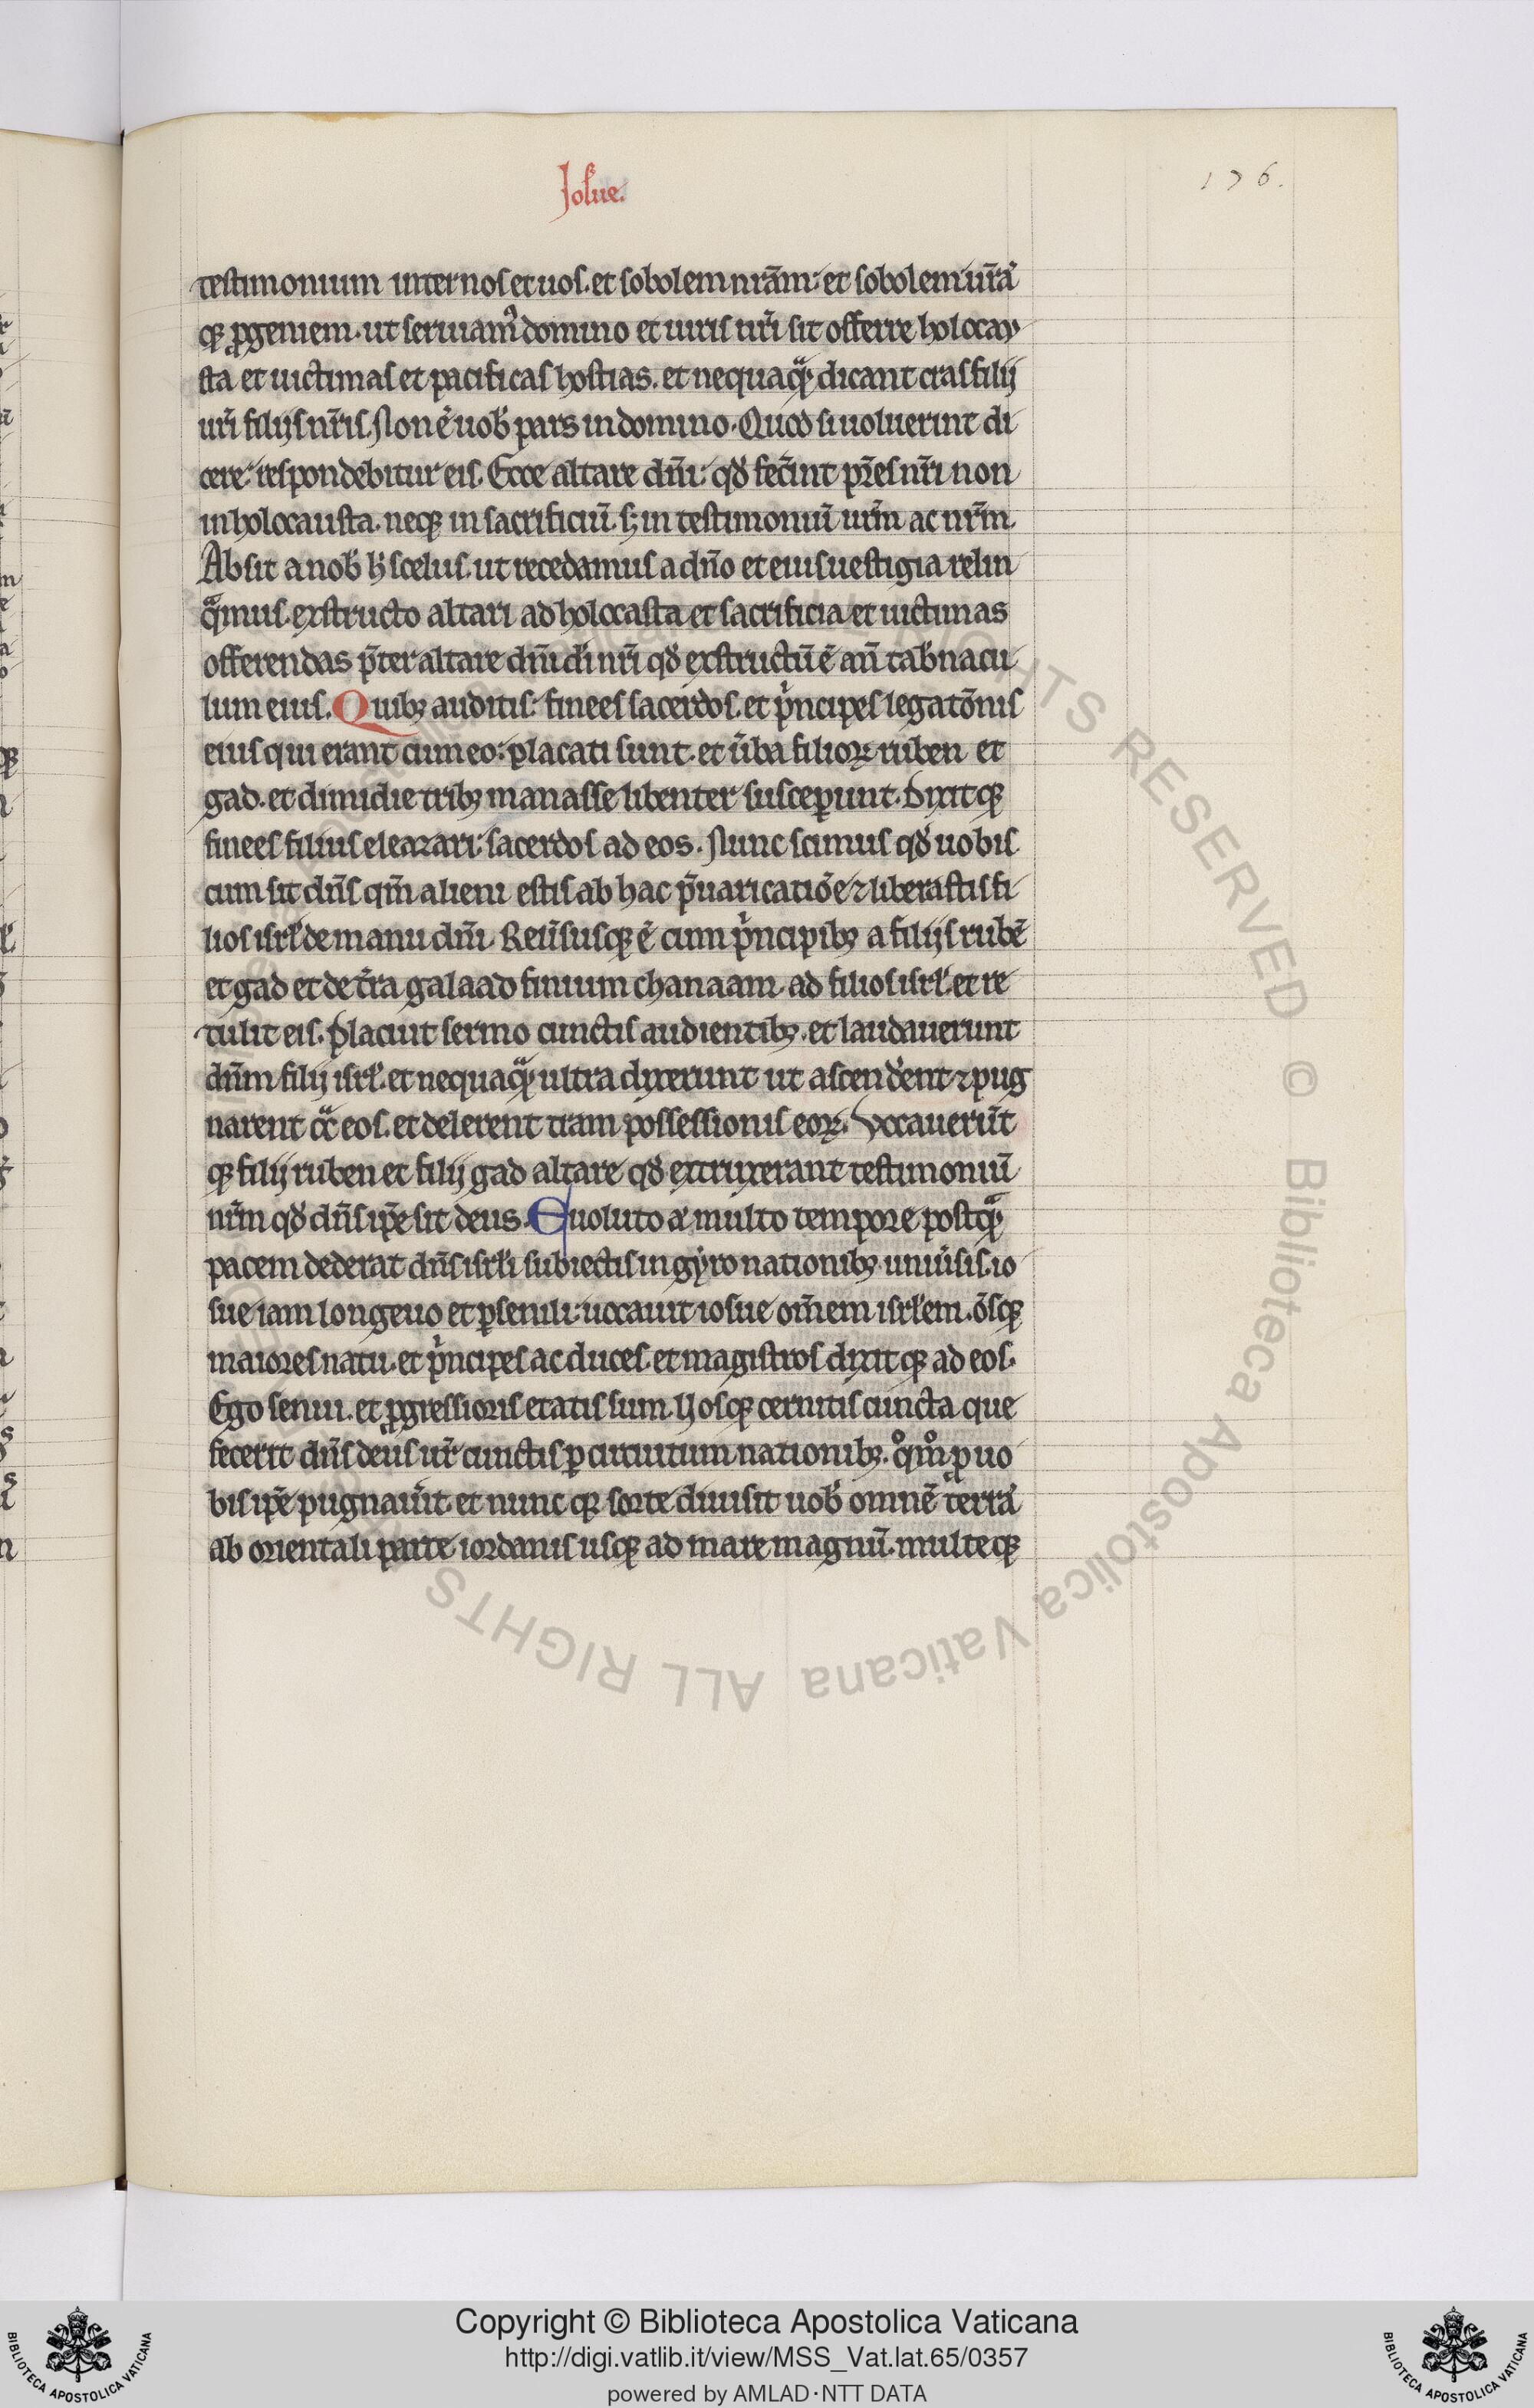 Iosue.
176.
testimonium inter nos et uos. et sobolem nr̄am: et sobolem ur̄ā
q̧ ꝓgeniem. ut seruiam᷒ domino et iuris nr̄i sit offerre holocau
sta et uictimas et pacificas hostias. et nequaq̄ dicant cras filij
ur̄i filijs nr̄is. Non ē uob̄ pars in domino. Quod si uoluerint di
cere: respondebitur eis. Ecce altare dn̄i: qd̄ fec̄int pr̄es nr̄i non
in holocausta. neq̧ in sacrificiū. s; in testimoniū ur̄m ac nr̄m.
Absit a nob̄ h̄ scelus. ut recedamus a dn̄o et eius uestigia relin
qͣmus. exstructo altari ad holocasta et sacrificia et uictimas
offerendas p̄ter altare dn̄i di nr̄i qd̄ exstructū ē an̄ tab̄nacu
lum eius. Quibꝫ auditis: finees sacerdos. et pͥncipes legatōnis
eius qui erant cum eo: placati sunt. et ūba filioꝝ ruben et
gad. et dimidie tribꝫ manasse libenter susceꝑunt. Dixitq̧
finees filius eleazari: sacerdos ad eos. Nunc scimus qd̄ uobis
cum sit dn̄s qm̄ alieni estis ab hac p̄uaricatiōe ⁊ liberastis fi
lios isrl̄ de manu dn̄i. Reūsusq̧ ē cum pͥncipibꝫ a filijs rubē
et gad et de t̄ra galaad finium chanaam. ad filios isrl̄. et re
tulit eis. Placuit sermo cunctis audientibꝫ. et laudauerunt
dn̄m filij isrl̄. et nequaq̄ ultra dixerunt ut ascend̄ent ⁊ pug
narent ꝯͣ eos. et delerent tr̄am possessionis eoꝝ. Vocauerūt
q̧ filij ruben et filij gad altare qd̄ extruxerant testimoniū
nr̄m qd̄ dn̄s ip̄e sit deus. Euoluto a᷒ multo tempore postq̄
pacem dederat dn̄s isrl̄i subiectis in gyro nationibꝫ uniūsis. io
sue iam longeuo et ꝑsenili: uocauit iosue om̄em isrl̄em. ōsq̧
maiores natu. et pͥncipes ac duces. et magistros dixitq̧ ad eos.
Ego senui. et ꝓgressioris etatis sum. Uosq̧ cernitis cuncta que
fecerit dn̄s deus ur̄ cunctis ꝑ circuitum nationibꝫ. qͦmͦ ꝓ uo
bis ip̄e pugnaūit et nunc q̧ sorte diuisit uob̄ omnē terrā
ab orientali parte iordanis usq̧ ad mare magnū. multeq̧
ALL RIGHTS RESERVED © Biblioteca Apostolica Vaticana
Copyright © Biblioteca Apostolica Vaticana
http://digi.vatlib.it/view/MSS_Vat.lat.65/0357
powered by AMLAD·NTT DATA
BIBLIOTECA APOSTOLICA VATICANA
BIBLIOTECA APOSTOLICA VATICANA